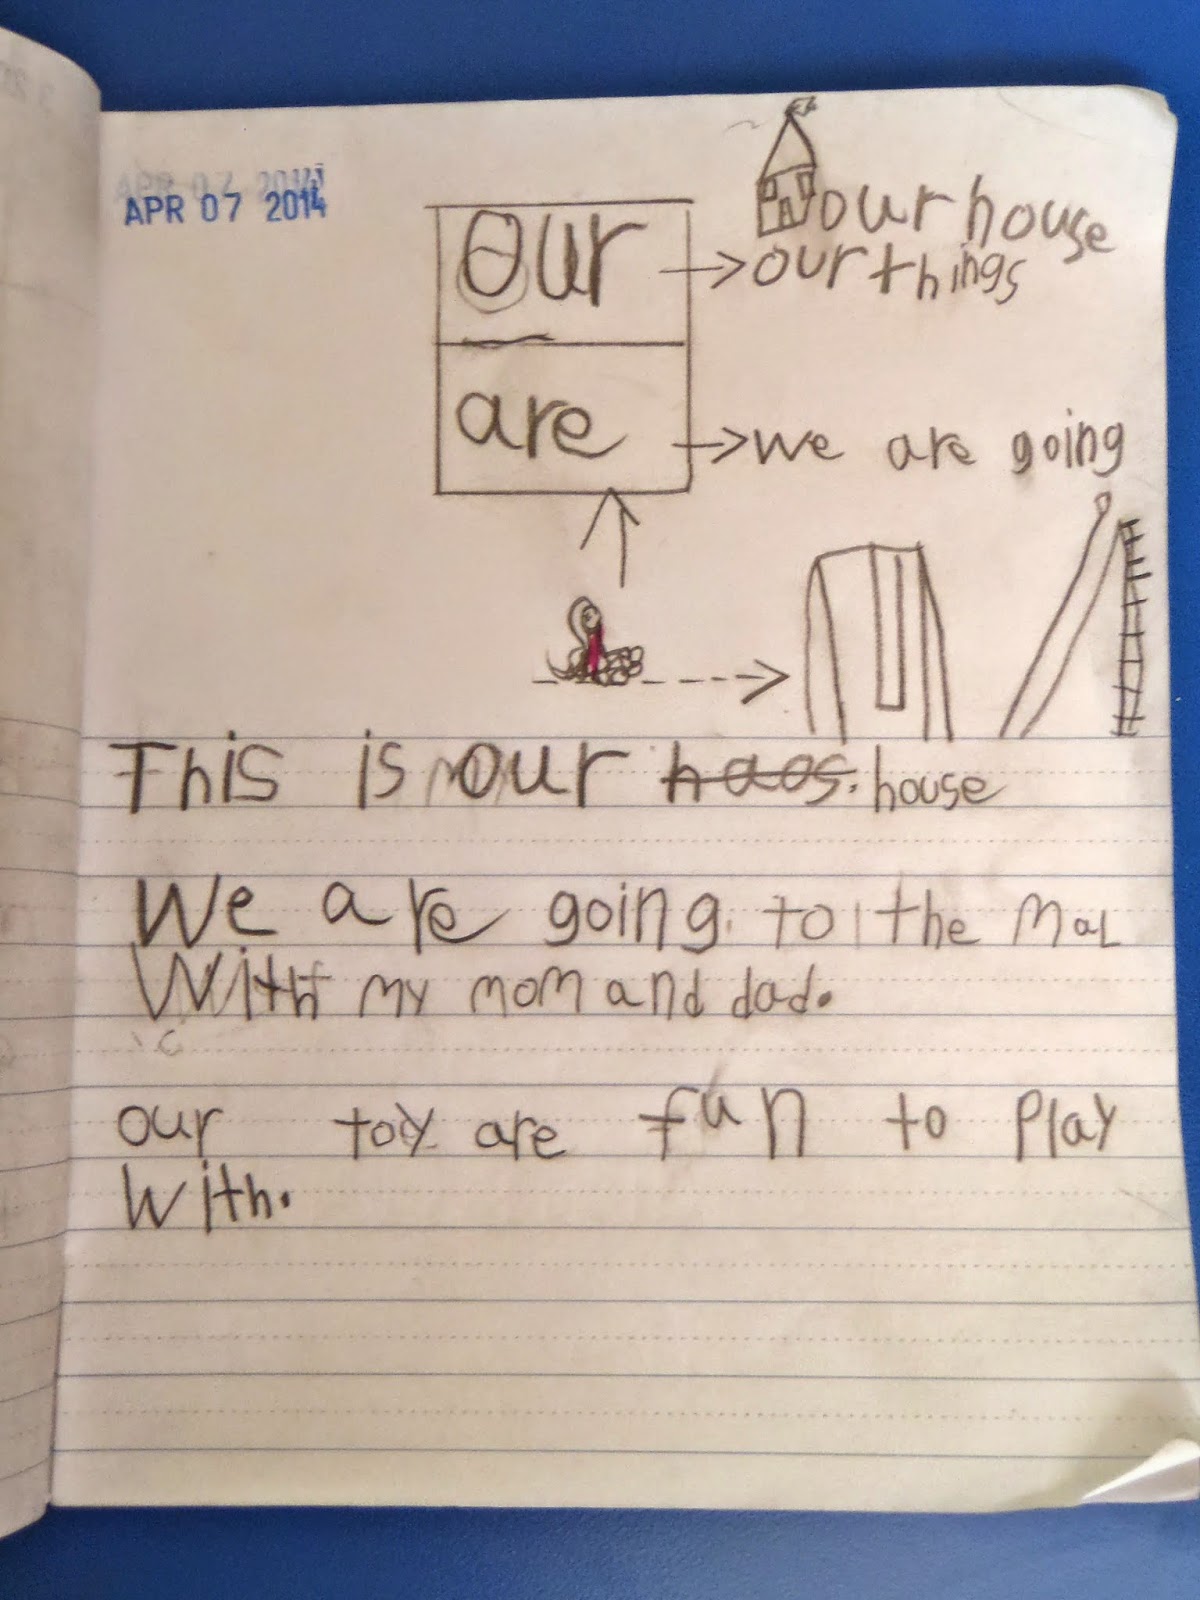 APR 07 2014
our house
Our our things
are we are going
This is our haos. house
We are going to the mal
With my mom and dad.
our toy are fun to Play
With.